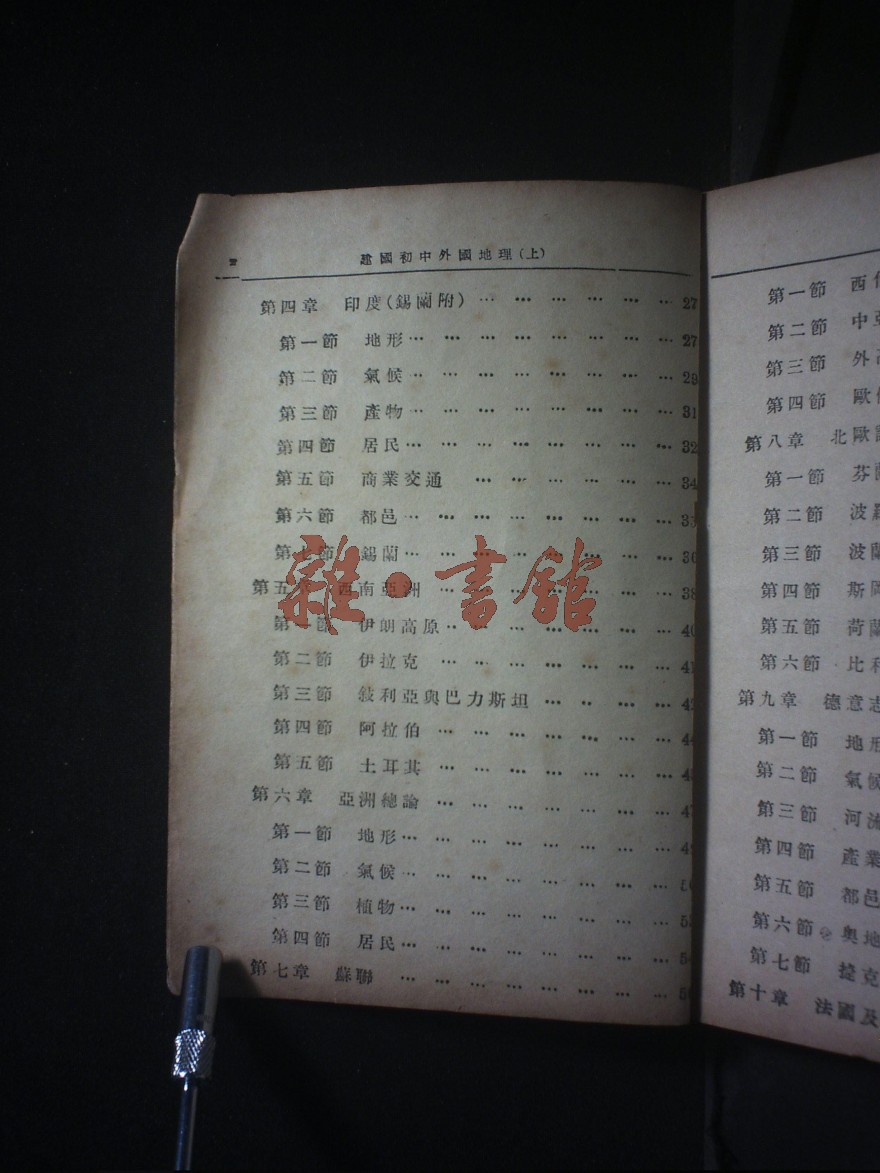 建國初中外國地理(上)
第四章 印度(錫蘭附) … … … … … … 27
第一節 地形 … … … … … … … … 27
第二節 氣候 … … … … … … … … 29
第三節 產物 … … … … … … … … 31
第四節 居民 … … … … … … … … 32
第五節 商業交通 … … … … … … 34
第六節 都邑 … … … … … … … …
第七節 錫蘭 … … … … … … … …
第五章 西南亞洲 … … … … … … … 38
第一節 伊朗高原 … … … … … … … 40
第二節 伊拉克 … … … … … … … 41
第三節 敍利亞與巴力斯坦 … … … … 42
第四節 阿拉伯 … … … … … … … 44
第五節 土耳其 … … … … … … …
第六章 亞洲總論 … … … … … … … 47
第一節 地形 … … … … … … … …
第二節 氣候 … … … … … … … …
第三節 植物 … … … … … … … …
第四節 居民 … … … … … … … …
第七章 蘇聯 … … … … … … … …
雜·書館
第一節 西
第二節 中亞
第三節 外高
第四節 歐
第八章 北歐
第一節 芬蘭
第二節 波羅
第三節 波蘭
第四節 斯
第五節 荷蘭
第六節 比利
第九章 德意志
第一節 地形
第二節 氣候
第三節 河流
第四節 產業
第五節 都邑
第六節 奧地
第七節 捷克
第十章 法國及